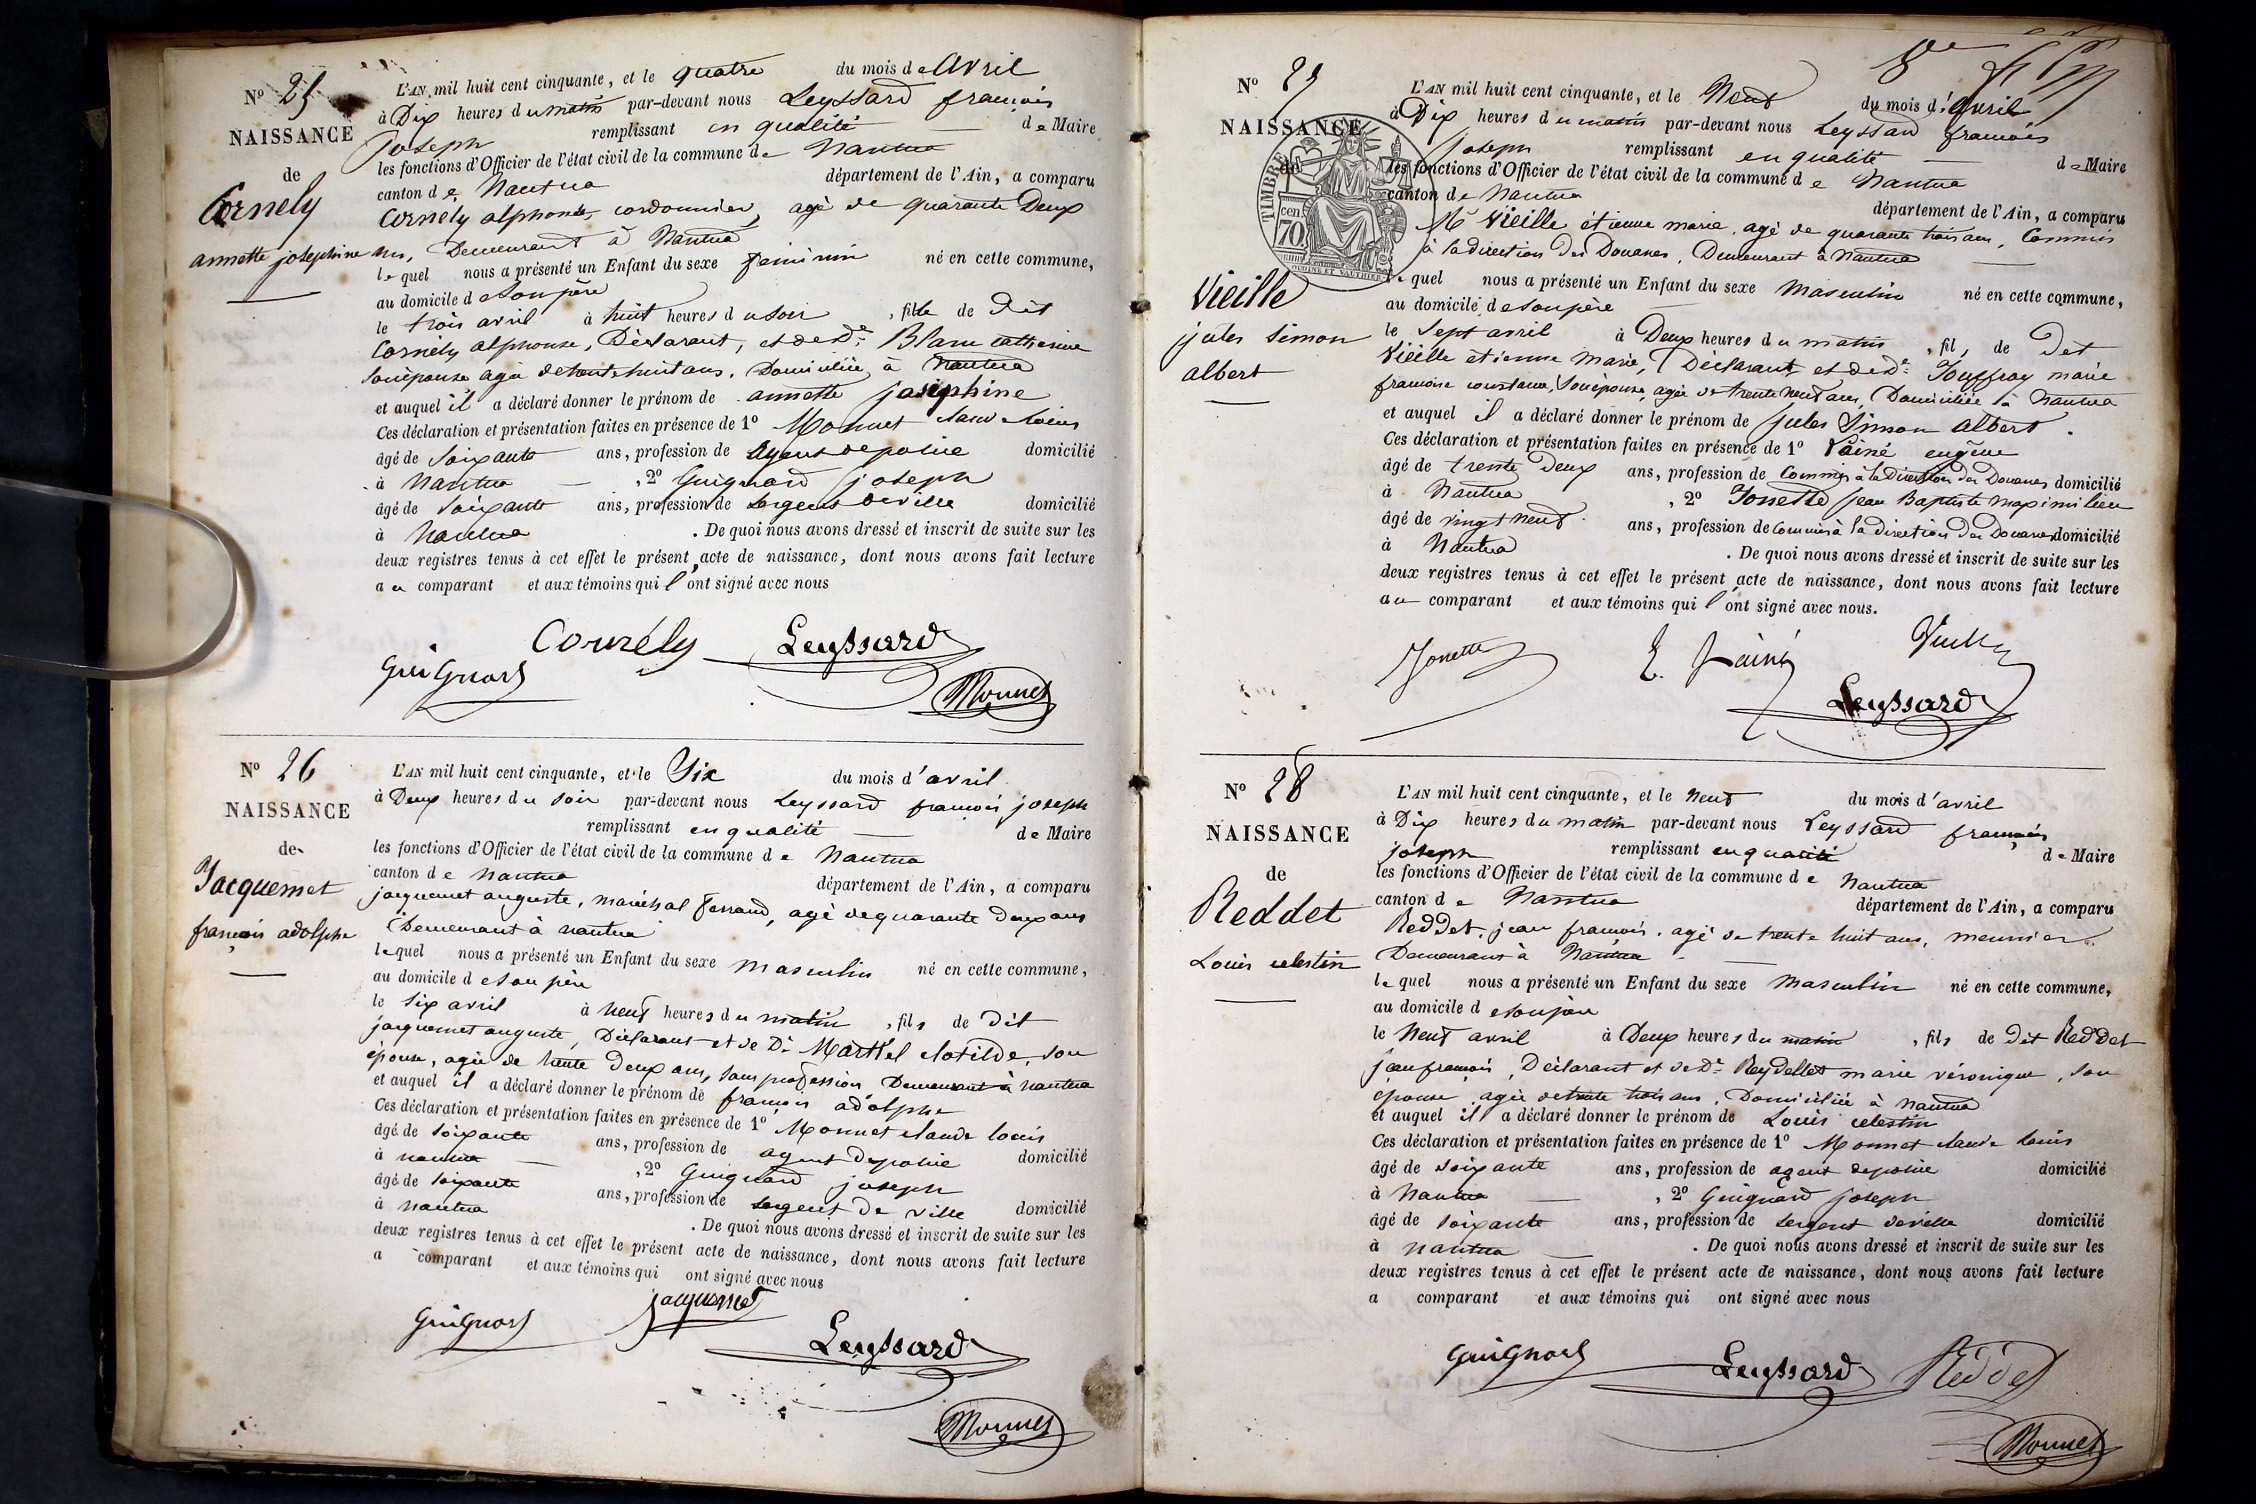 N° 25
NAISSANCE
de
Cornely
annette josephine
L'AN mil huit cent cinquante, et le quatre du mois de Avril
à Dix heures du matin par-devant nous Leyssard françois
joseph remplissant en qualité de Maire
les fonctions d'Officier de l'état civil de la commune de Nantua
canton de Nantua département de l'Ain, a comparu
Cornely alphonse, cordonnier, agé de quarante Deux
ans, Demeurant à Nantua
lequel nous a présenté un Enfant du sexe feminin né en cette commune,
au domicile de son père
le trois avril à huit heures du soir, fille de Dit
Cornely alphonse, Déclarant, et de De Blanc catherine
son épouse agée de trente huit ans, Domiciliée à Nantua
et auquel il a déclaré donner le prénom de annette josephine
Ces déclaration et présentation faites en présence de 1° Monnet claude Louis
âgé de soixante ans, profession de agent de police domicilié
à Nantua, 2° Guignard joseph
âgé de soixante ans, profession de sergent de ville domicilié
à Nantua. De quoi nous avons dressé et inscrit de suite sur les
deux registres tenus à cet effet le présent acte de naissance, dont nous avons fait lecture
au comparant et aux témoins qui l'ont signé avec nous
Cornély Leyssard
Guignard
Monnet
N° 26
NAISSANCE
de
Jacquemet
françois adolphe
L'AN mil huit cent cinquante, et le Six du mois d'avril
à Deux heures du soir par-devant nous Leyssard françois joseph
remplissant en qualité de Maire
les fonctions d'Officier de l'état civil de la commune de Nantua
canton de Nantua département de l'Ain, a comparu
jacquemet auguste, maréchal ferrand, agé de quarante Deux ans
Demeurant à nantua
lequel nous a présenté un Enfant du sexe masculin né en cette commune,
au domicile de son père
le six avril à neuf heures du matin, fils de Dit
jacquemet auguste, Déclarant et de De Marttel clotilde, son
épouse, agée de trente Deux ans, sans profession Demeurant à nantua
et auquel il a déclaré donner le prénom de françois adolphe
Ces déclaration et présentation faites en présence de 1° Monnet claude louis
âgé de soixante ans, profession de agent de police domicilié
à nantua, 2° Guignard joseph
âgé de soixante ans, profession de sergent de ville domicilié
à nantua. De quoi nous avons dressé et inscrit de suite sur les
deux registres tenus à cet effet le présent acte de naissance, dont nous avons fait lecture
a comparant et aux témoins qui ont signé avec nous
jacquemet
Guignard
Leyssard
Monnet
N° 27
NAISSANCE
de
Vieille
jules simon
albert
TIMBRE
70 cen
L'AN mil huit cent cinquante, et le Neuf du mois d'avril
à Dix heures du matin par-devant nous Leyssard françois
joseph remplissant en qualité de Maire
les fonctions d'Officier de l'état civil de la commune de Nantua
canton de Nantua département de l'Ain, a comparu
Mr Vieille étienne marie, agé de quarante trois ans, Commis
à la direction des Douanes, Demeurant à Nantua
lequel nous a présenté un Enfant du sexe Masculin né en cette commune,
au domicile de son père
le sept avril à Deux heures du matin, fils de Dit
Vieille étienne Marie, Déclarant et de De Jouffray marie
françoise constance, son épouse, agée de trente neuf ans, Domiciliée à Nantua
et auquel il a déclaré donner le prénom de jules Simon albert.
Ces déclaration et présentation faites en présence de 1° Lainé eugène
âgé de trente Deux ans, profession de Commis à la Direction des Douanes domicilié
à Nantua, 2° Jonette jean Baptiste maximilien
âgé de vingt neuf ans, profession de Commis à la direction des Douanes domicilié
à Nantua. De quoi nous avons dressé et inscrit de suite sur les
deux registres tenus à cet effet le présent acte de naissance, dont nous avons fait lecture
au comparant et aux témoins qui l'ont signé avec nous.
Jonette E. Lainé Vieille
Leyssard
N° 28
NAISSANCE
de
Reddet
Louis celestin
L'AN mil huit cent cinquante, et le neuf du mois d'avril
à Dix heures du matin par-devant nous Leyssard françois
joseph remplissant en qualité de Maire
les fonctions d'Officier de l'état civil de la commune de Nantua
canton de Nantua département de l'Ain, a comparu
Reddet, jean françois, agé de trente huit ans, meunier
Demeurant à Nantua
lequel nous a présenté un Enfant du sexe masculin né en cette commune,
au domicile de son père
le neuf avril à Deux heures du matin, fils de Dit Reddet
jean françois, Déclarant et de De Reydellet marie véronique, son
épouse agée de trente trois ans, Domiciliée à nantua
et auquel il a déclaré donner le prénom de Louis celestin
Ces déclaration et présentation faites en présence de 1° Monnet claude louis
âgé de soixante ans, profession de agent de police domicilié
à Nantua, 2° Guignard joseph
âgé de soixante ans, profession de sergent de ville domicilié
à nantua. De quoi nous avons dressé et inscrit de suite sur les
deux registres tenus à cet effet le présent acte de naissance, dont nous avons fait lecture
a comparant et aux témoins qui ont signé avec nous
Guignard Leyssard Reddet
Monnet